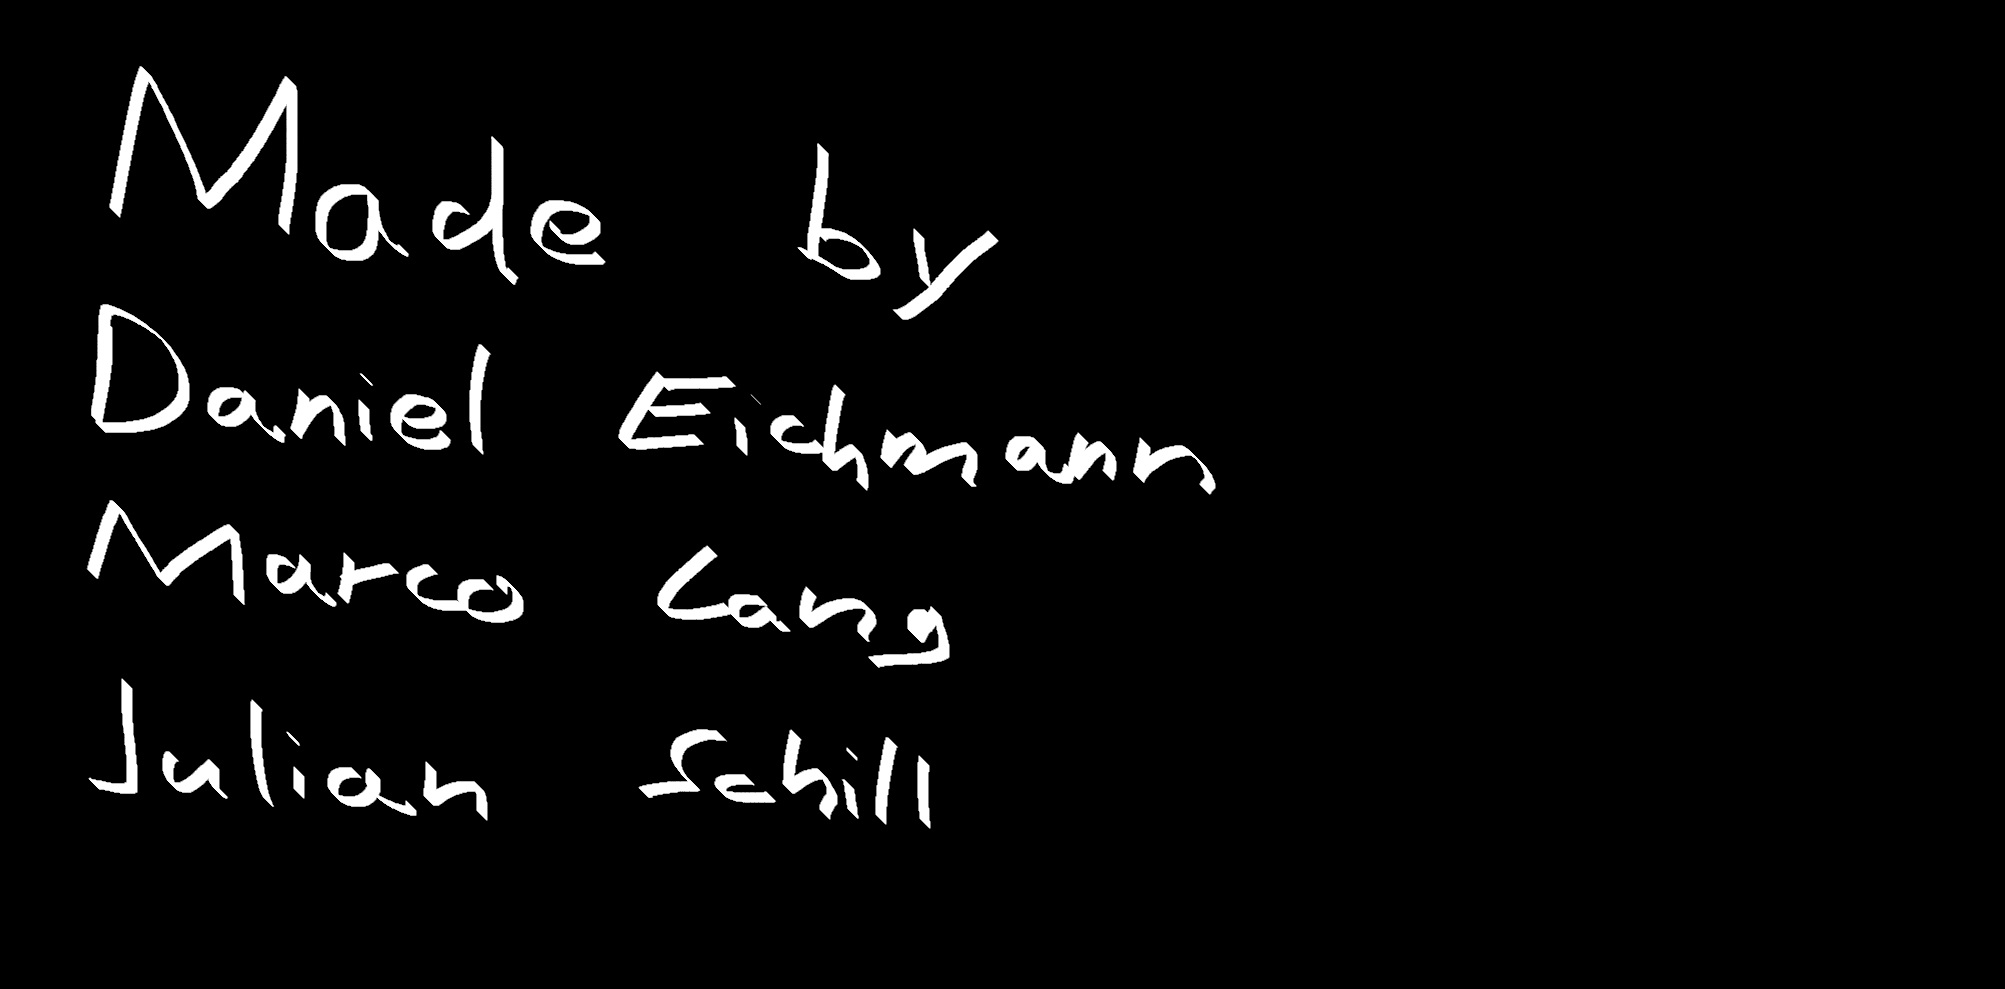 Made by
Daniel Eichmann
Marco Lang
Julian Schill